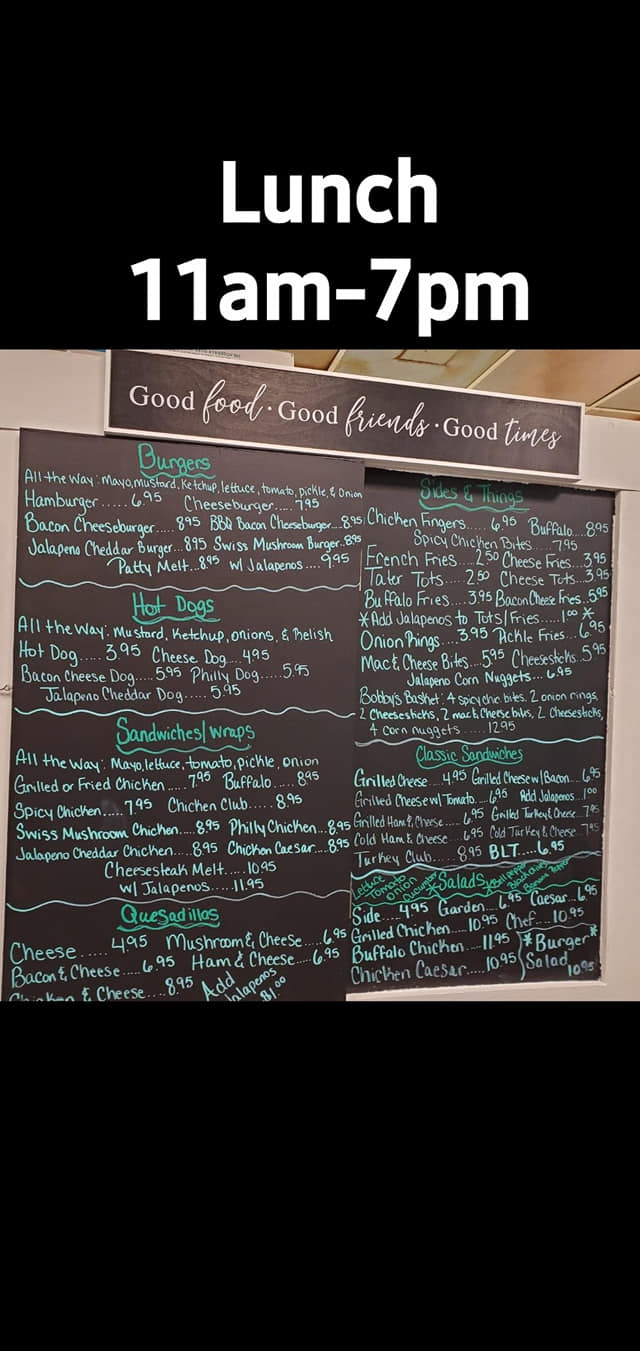 Lunch
11am-7pm
Good food · Good friends · Good times
Burgers
All the Way: Mayo, mustard, Ketchup, lettuce, tomato, pickle, & Onion
Hamburger..... 6.95 Cheeseburger.... 7.95
Bacon Cheeseburger.... 8.95 BBQ Bacon Cheeseburger...8.95
Jalapeno Cheddar Burger...8.95 Swiss Mushroom Burger..8.95
Patty Melt...8.95 w/ Jalapenos....9.95
Hot Dogs
All the Way: Mustard, Ketchup, onions, & Relish
Hot Dog..... 3.95 Cheese Dog....4.95
Bacon Cheese Dog.... 5.95 Philly Dog.....5.95
Jalapeno Cheddar Dog..... 5.95
Sandwiches/Wraps
All the Way: Mayo, lettuce, tomato, pickle, onion
Grilled or Fried Chicken..... 7.95 Buffalo..... 8.95
Spicy Chicken.... 7.95 Chicken Club..... 8.95
Swiss Mushroom Chicken....8.95 Philly Chicken...8.95
Jalapeno Cheddar Chicken....8.95 Chicken Caesar....8.95
Cheesesteak Melt.....10.95
w/ Jalapenos.....11.95
Quesadillas
Cheese..... 4.95 Mushroom & Cheese....6.95
Bacon & Cheese.... 6.95 Ham & Cheese.....6.95
Chicken & Cheese....8.95 Add
Jalapenos
$1.00
Sides & Things
Chicken Fingers..... 6.95 Buffalo...8.95
Spicy Chicken Bites.....7.95
French Fries.....2.50 Cheese Fries...3.95
Tater Tots.....2.50 Cheese Tots...3.95
Buffalo Fries....3.95 Bacon Cheese Fries..5.95
*Add Jalapenos to Tots/Fries.....1.00 *
Onion Rings....3.95 Pickle Fries...6.95
Mac & Cheese Bites...5.95 Cheesesticks..5.95
Jalapeno Corn Nuggets.... 6.95
Bobby's Basket: 4 spicy chic. bites, 2 onion rings,
2 Cheesesticks, 2 mac & cheese bites, 2 Cheesesticks,
4 corn nuggets......12.95
Classic Sandwiches
Grilled Cheese....4.95 Grilled Cheese w/Bacon...6.95
Grilled Cheese w/ Tomato....6.95 Add Jalapenos...1.00
Grilled Ham & Cheese..... 6.95 Grilled Turkey & Cheese..7.95
Cold Ham & Cheese.... 6.95 Cold Turkey & Cheese...7.95
Turkey Club..... 8.95 BLT....6.95
*Salads
Lettuce
Tomato
Onion
Cucumber
Side....4.95 Garden...6.95 Caesar...6.95
Grilled Chicken....10.95 Chef....10.95
Buffalo Chicken....11.95 *Burger*
Chicken Caesar.....10.95 Salad
10.95